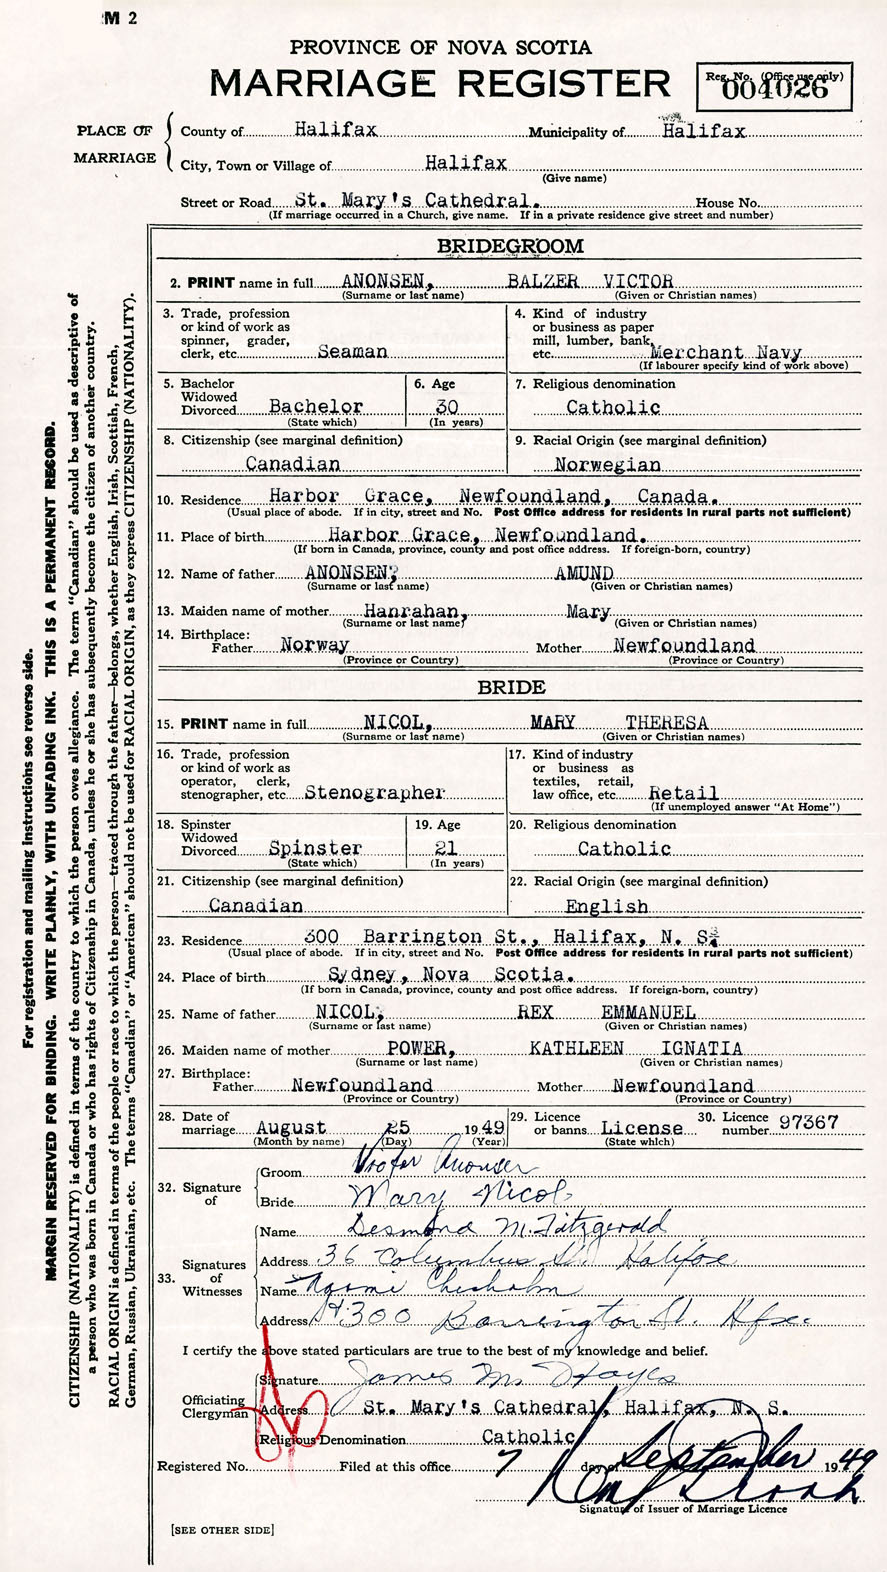 M 2
PROVINCE OF NOVA SCOTIA
MARRIAGE REGISTER
Reg. No. (Office use only)
004026
PLACE OF MARRIAGE
County of Halifax Municipality of Halifax
City, Town or Village of Halifax
(Give name)
Street or Road St. Mary's Cathedral. House No.
(If marriage occurred in a Church, give name. If in a private residence give street and number)
BRIDEGROOM
2. PRINT name in full ANONSEN, BALZER VICTOR
(Surname or last name) (Given or Christian names)
3. Trade, profession
or kind of work as
spinner, grader,
clerk, etc. Seaman
4. Kind of industry
or business as paper
mill, lumber, bank,
etc. Merchant Navy
(If labourer specify kind of work above)
5. Bachelor
Widowed
Divorced Bachelor
(State which)
6. Age
30
(In years)
7. Religious denomination
Catholic
8. Citizenship (see marginal definition)
Canadian
9. Racial Origin (see marginal definition)
Norwegian
10. Residence Harbor Grace, Newfoundland, Canada.
(Usual place of abode. If in city, street and No. Post Office address for residents in rural parts not sufficient)
11. Place of birth Harbor Grace, Newfoundland.
(If born in Canada, province, county and post office address. If foreign-born, country)
12. Name of father ANONSEN, AMUND
(Surname or last name) (Given or Christian names)
13. Maiden name of mother Hanrahan, Mary
(Surname or last name) (Given or Christian names)
14. Birthplace:
Father Norway Mother Newfoundland
(Province or Country) (Province or Country)
BRIDE
15. PRINT name in full NICOL, MARY THERESA
(Surname or last name) (Given or Christian names)
16. Trade, profession
or kind of work as
operator, clerk,
stenographer, etc. Stenographer
17. Kind of industry
or business as
textiles, retail,
law office, etc. Retail
(If unemployed answer "At Home")
18. Spinster
Widowed
Divorced Spinster
(State which)
19. Age
21
(In years)
20. Religious denomination
Catholic
21. Citizenship (see marginal definition)
Canadian
22. Racial Origin (see marginal definition)
English
23. Residence 300 Barrington St., Halifax, N. S.
(Usual place of abode. If in city, street and No. Post Office address for residents in rural parts not sufficient)
24. Place of birth Sydney, Nova Scotia.
(If born in Canada, province, county and post office address. If foreign-born, country)
25. Name of father NICOL, REX EMMANUEL
(Surname or last name) (Given or Christian names)
26. Maiden name of mother POWER, KATHLEEN IGNATIA
(Surname or last name) (Given or Christian names)
27. Birthplace:
Father Newfoundland Mother Newfoundland
(Province or Country) (Province or Country)
28. Date of
marriage August 25 1949
(Month by name) (Day) (Year)
29. Licence
or banns License
(State which)
30. Licence
number 97367
32. Signature of
Groom Victor Anonsen
Bride Mary Nicol
33. Signatures of Witnesses
Name Desmond M. Fitzgerald
Address 36 Columbus St. Halifax
Name Naomi Chisholm
Address 300 Barrington St. Hfx.
I certify the above stated particulars are true to the best of my knowledge and belief.
Officiating Clergyman
Signature James M. Hayes
Address St. Mary's Cathedral, Halifax, N. S.
Religious Denomination Catholic
Registered No. Filed at this office 7 day of September 1949
Signature of Issuer of Marriage Licence
[SEE OTHER SIDE]
For registration and mailing instructions see reverse side.
MARGIN RESERVED FOR BINDING. WRITE PLAINLY, WITH UNFADING INK. THIS IS A PERMANENT RECORD.
CITIZENSHIP (NATIONALITY) is defined in terms of the country to which the person owes allegiance. The term "Canadian" should be used as descriptive of
a person who was born in Canada or who has rights of Citizenship in Canada, unless he or she has subsequently become the citizen of another country.
RACIAL ORIGIN is defined in terms of the people or race to which the person—traced through the father—belongs, whether English, Irish, Scottish, French,
German, Russian, Ukrainian, etc. The terms "Canadian" or "American" should not be used for RACIAL ORIGIN, as they express CITIZENSHIP (NATIONALITY).